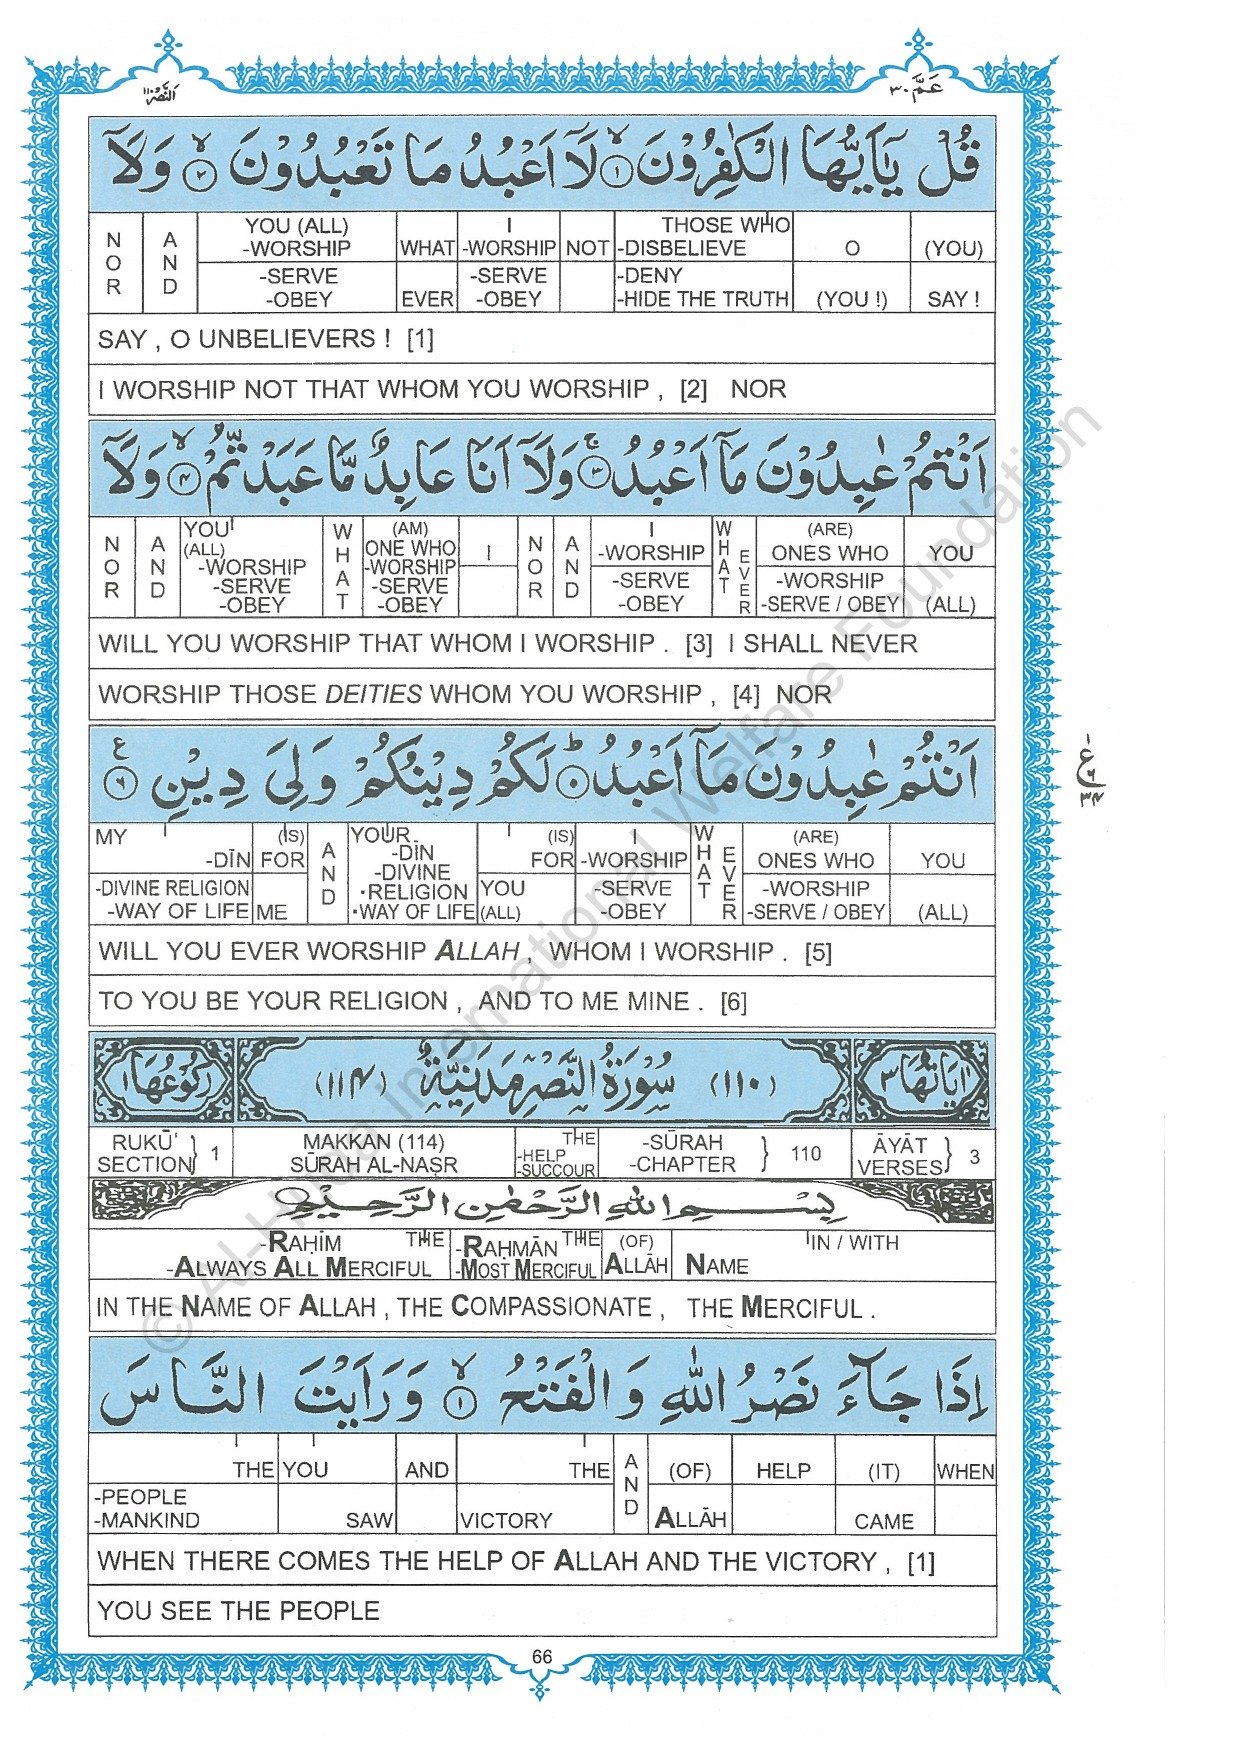 النَّصْر ١١٠
عَمَّ ٣٠
قُلْ يٰۤاَيُّهَا الْكٰفِرُوْنَ ۙ﴿۱﴾ لَاۤ اَعْبُدُ مَا تَعْبُدُوْنَ ۙ﴿۲﴾ وَلَاۤ
(YOU) SAY !
O (YOU !)
THOSE WHO -DISBELIEVE -DENY -HIDE THE TRUTH
NOT
I -WORSHIP -SERVE -OBEY
WHAT EVER
YOU (ALL) -WORSHIP -SERVE -OBEY
AND
NOR
SAY , O UNBELIEVERS ! [1]
I WORSHIP NOT THAT WHOM YOU WORSHIP , [2] NOR
اَنْتُمْ عٰبِدُوْنَ مَاۤ اَعْبُدُ ۚ﴿۳﴾ وَلَاۤ اَنَا عَابِدٌ مَّا عَبَدْتُّمْ ۙ﴿۴﴾ وَلَاۤ
YOU (ALL)
(ARE) ONES WHO -WORSHIP -SERVE / OBEY
WHAT EVER
I -WORSHIP -SERVE -OBEY
AND
NOR
I
(AM) ONE WHO -WORSHIP -SERVE -OBEY
WHAT
YOU (ALL) -WORSHIP -SERVE -OBEY
AND
NOR
WILL YOU WORSHIP THAT WHOM I WORSHIP . [3] I SHALL NEVER
WORSHIP THOSE DEITIES WHOM YOU WORSHIP , [4] NOR
اَنْتُمْ عٰبِدُوْنَ مَاۤ اَعْبُدُ ؕ﴿۵﴾ لَكُمْ دِيْنُكُمْ وَلِيَ دِيْنِ ﴿۶﴾ ع
YOU (ALL)
(ARE) ONES WHO -WORSHIP -SERVE / OBEY
WHAT EVER
-WORSHIP -SERVE -OBEY
I (IS) FOR YOU (ALL)
YOUR -DĪN -DIVINE ·RELIGION ·WAY OF LIFE
AND
(IS) FOR ME
MY -DĪN -DIVINE RELIGION -WAY OF LIFE
WILL YOU EVER WORSHIP ALLAH , WHOM I WORSHIP . [5]
TO YOU BE YOUR RELIGION , AND TO ME MINE . [6]
اٰيَاتُهَا ٣
(١١٠) سُوْرَةُ النَّصْرِ مَدَنِيَّةٌ (١١٤)
رُكُوْعُهَا ١
ĀYĀT VERSES } 3
-SŪRAH -CHAPTER } 110
THE -HELP -SUCCOUR
MAKKAN (114) SŪRAH AL-NAṢR
RUKŪ' SECTION } 1
بِسْمِ اللهِ الرَّحْمٰنِ الرَّحِيْمِ
IN / WITH NAME
(OF) ALLĀH
THE -RAḤMĀN -MOST MERCIFUL
THE -RAḤĪM -ALWAYS ALL MERCIFUL
IN THE NAME OF ALLAH , THE COMPASSIONATE , THE MERCIFUL .
اِذَا جَآءَ نَصْرُ اللهِ وَالْفَتْحُ ۙ﴿۱﴾ وَرَاَيْتَ النَّاسَ
WHEN
(IT) CAME
HELP
(OF) ALLĀH
AND
THE VICTORY
AND
YOU SAW
THE -PEOPLE -MANKIND
WHEN THERE COMES THE HELP OF ALLAH AND THE VICTORY , [1]
YOU SEE THE PEOPLE
66
© Al-Huda International Welfare Foundation